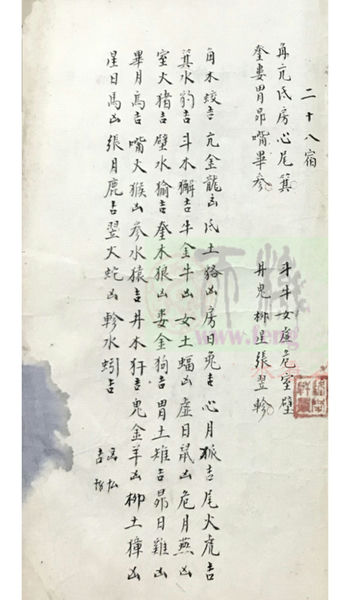 二十八宿
角亢氐房心尾箕 斗牛女虚危室壁
奎娄胃昴嘴毕参 井鬼柳星張翌軫
角木蛟吉 亢金龍凶 氐土貉凶 房日兎吉 心月狐吉 尾火虎吉
箕水豹吉 斗木獬吉 牛金牛凶 女土蝠凶 虚日鼠凶 危月燕凶
室火猪吉 壁水㺄吉 奎木狼凶 娄金狗吉 胃土雉吉 昴日雞凶
畢月烏吉 嘴火猴凶 参水猿吉 井木犴吉 鬼金羊凶 柳土獐凶
星日馬凶 張月鹿吉 翌火蛇凶 軫水蚓吉